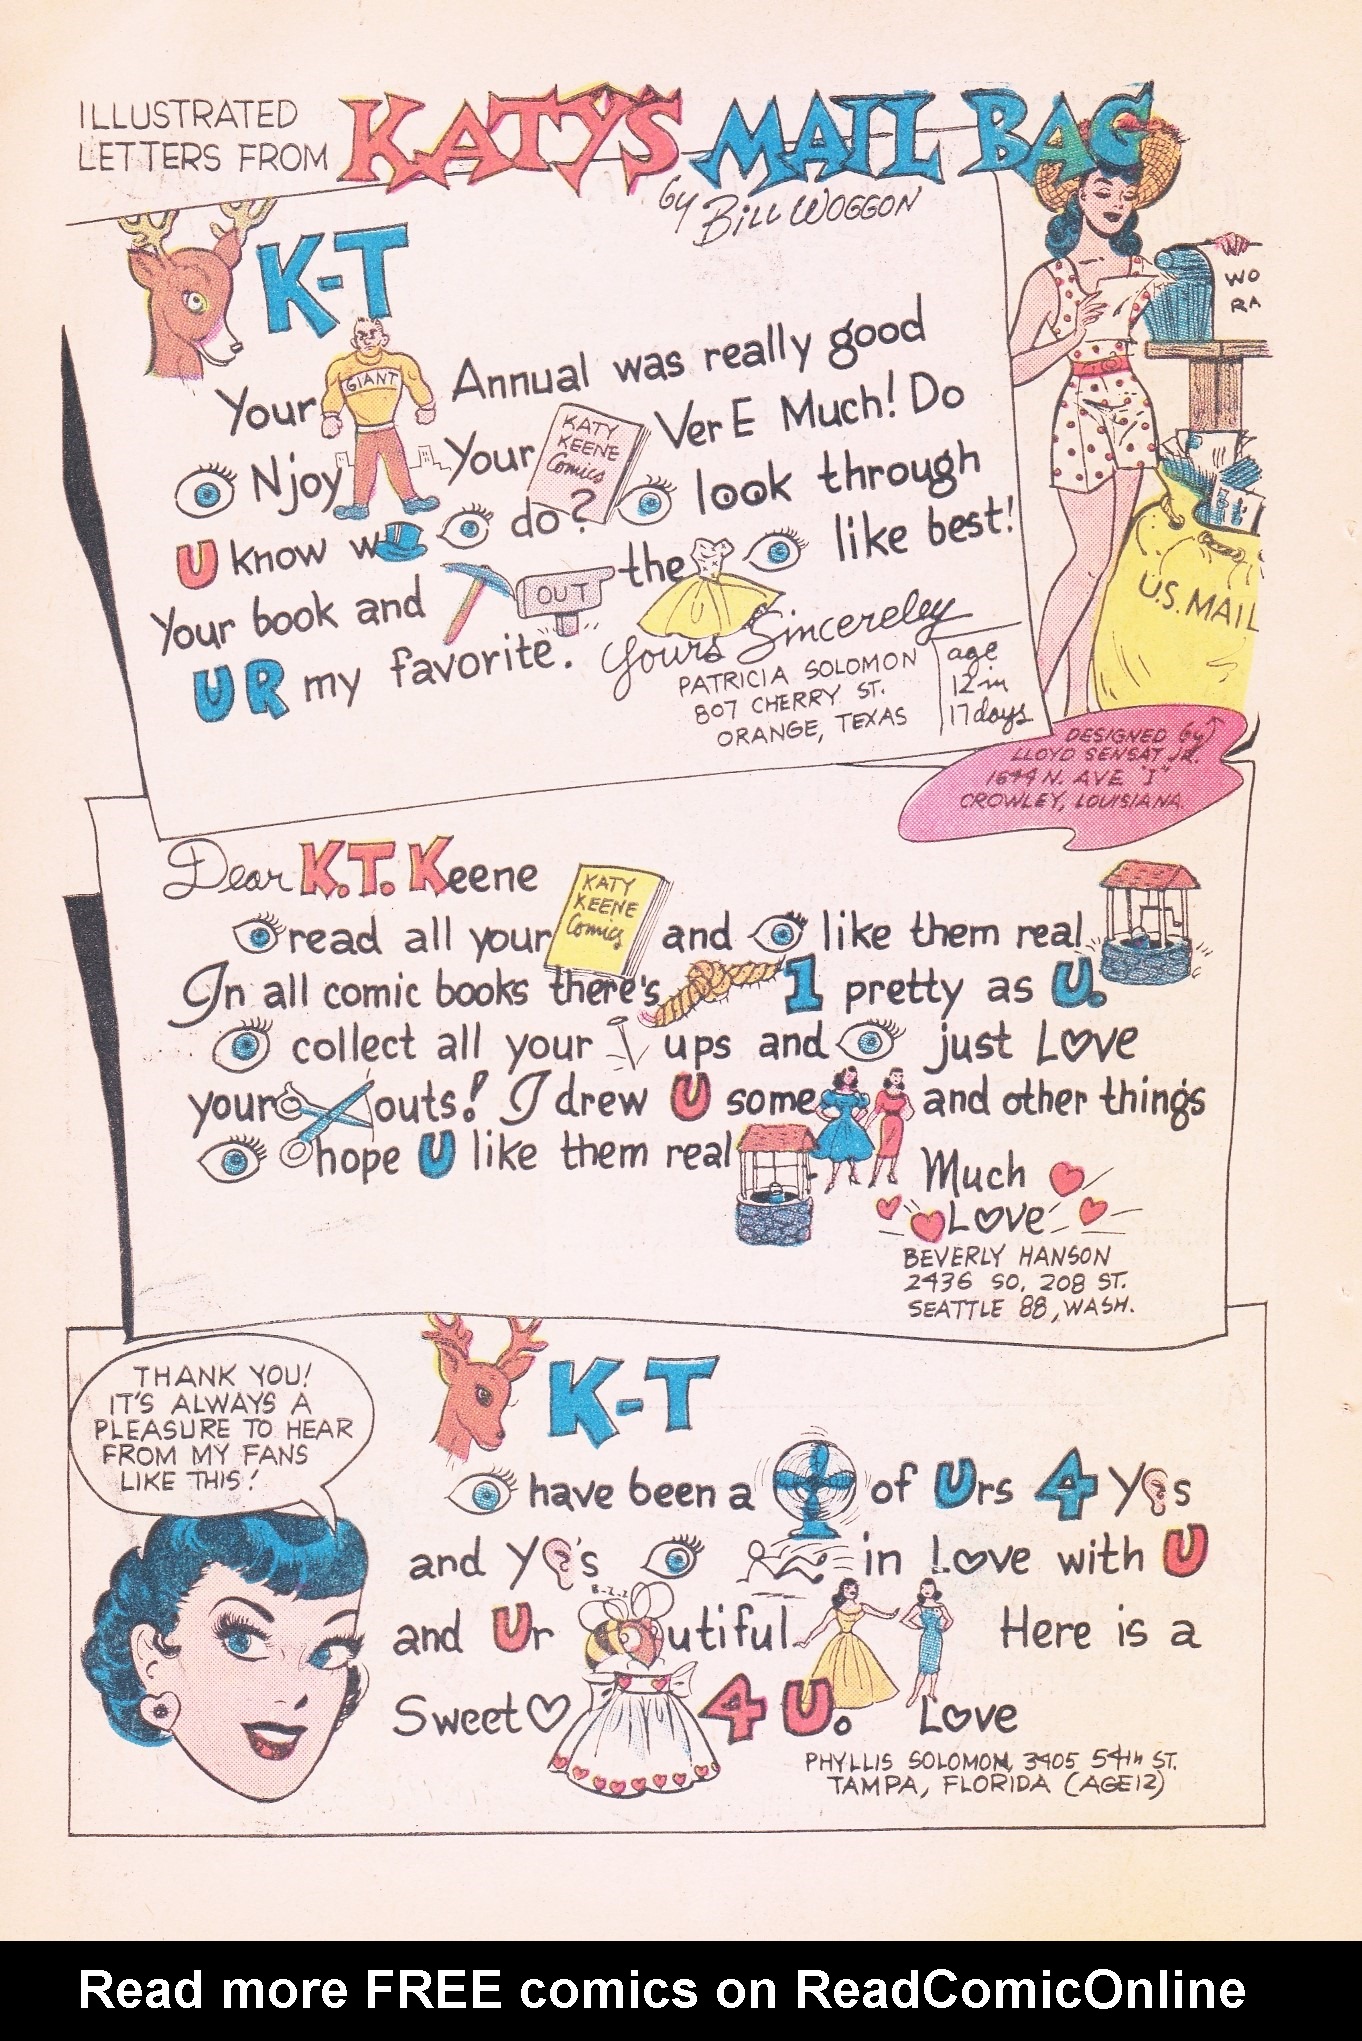 ILLUSTRATED
LETTERS FROM
KATY'S MAIL BAG
by BILL WOGGON
WO
RA
K-T
Your GIANT Annual was really good
Njoy Your KATY KEENE Comics Ver E Much! Do
U know w do? look through
Your book and OUT the like best!
UR my favorite. Yours Sincereley
PATRICIA SOLOMON
807 CHERRY ST.
ORANGE, TEXAS
age
12 in
17 days
U.S. MAIL
DESIGNED by
LLOYD SENSAT JR.
1644 N. AVE "I"
CROWLEY, LOUISIANA
Dear K.T. Keene
read all your KATY KEENE Comics and like them real
In all comic books there's 1 pretty as U.
collect all your ups and just Love
your outs! I drew U some and other things
hope U like them real
Much
Love
BEVERLY HANSON
2436 SO. 208 ST.
SEATTLE 88, WASH.
THANK YOU!
IT'S ALWAYS A
PLEASURE TO HEAR
FROM MY FANS
LIKE THIS!
K-T
have been a of Urs 4 Y s
and Y 's in Love with U
B-Z-Z
and Ur utiful Here is a
Sweet 4 U. Love
PHYLLIS SOLOMON, 3405 54th ST.
TAMPA, FLORIDA (AGE 12)
Read more FREE comics on ReadComicOnline